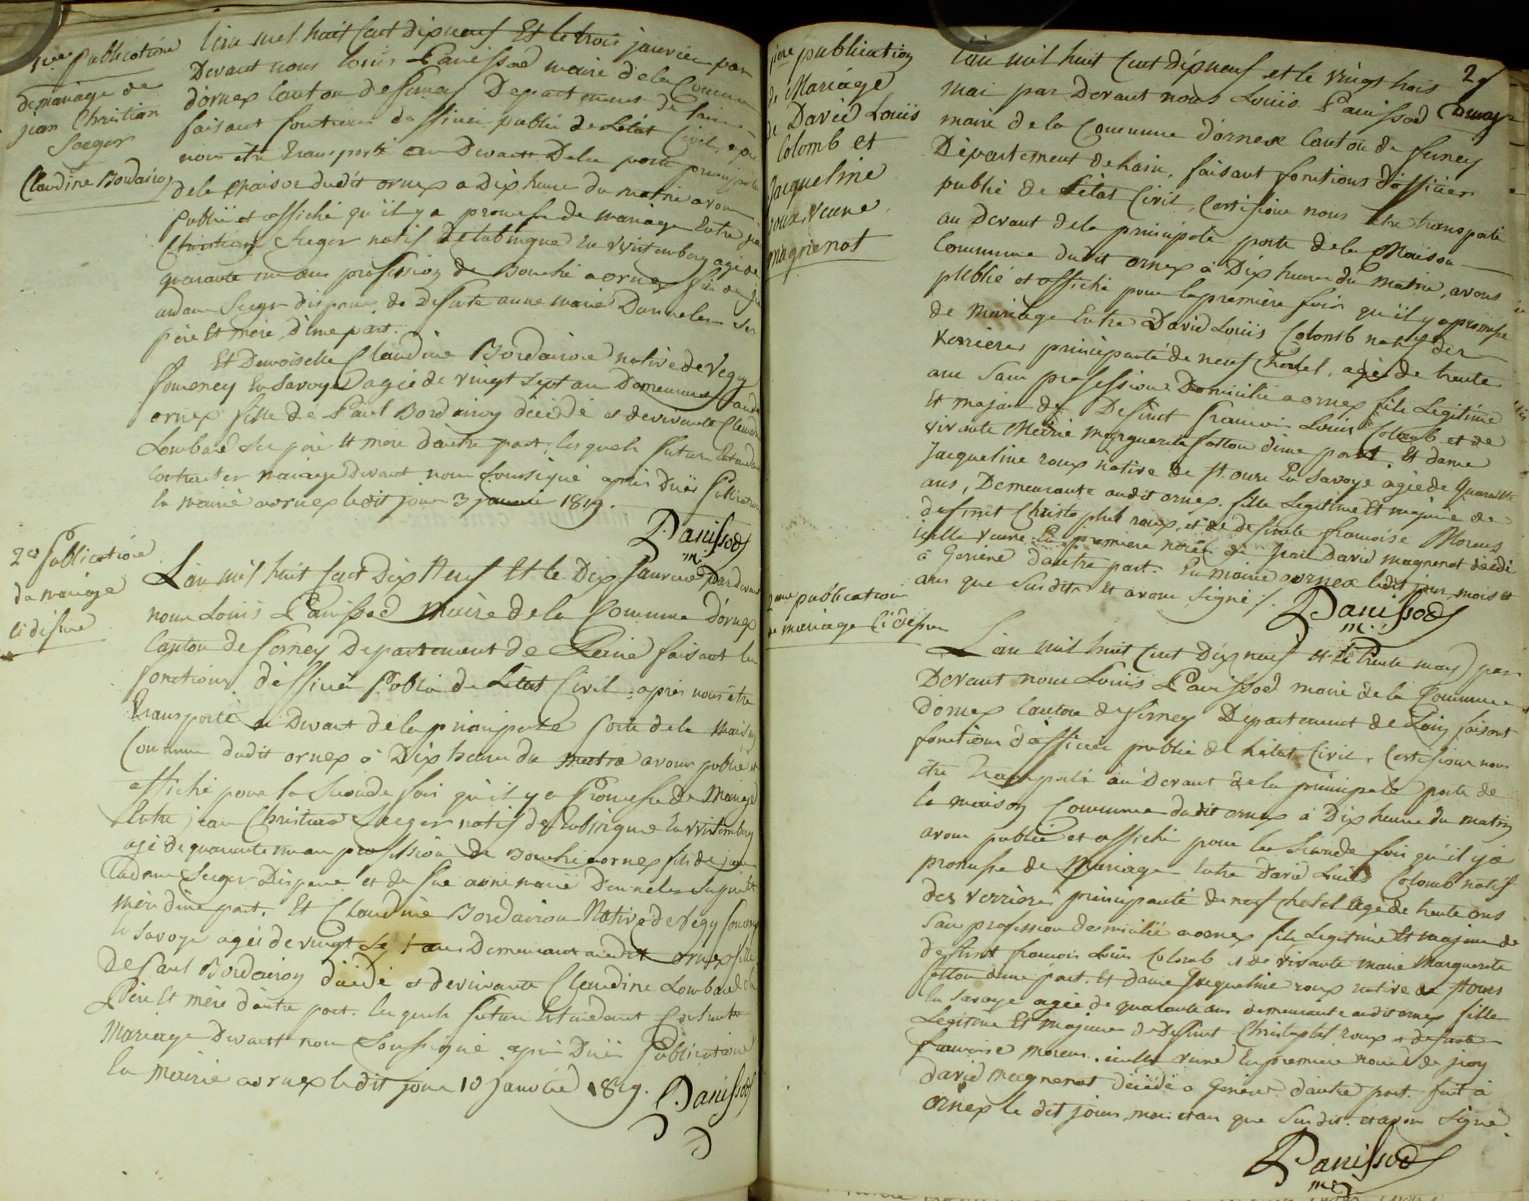 1ere publication
de mariage de
jean Christian
Saeger
Claudine Bordairon
L'an mil huit Cent dix neuf Et le trois janvier par
Devant nous louis Panissod maire de la Commune
d'ornex Canton de ferney Departement de
faisant fonctions d'officier public de L'état Civil,
nous etre transporté au Devant Dela porte principale
dela Maison dudit ornex a Dix heure du matin avons
publié et affiché qu'il y a promesse de mariage Entre
Christian Saeger natif De tubingue En Wirtemberg agé de
quarante un ans profession de Bouché a ornex fils de
adam Saeger et de defunte anne marie Danneler ses
père Et mère, d'une part.
Et Demoiselle Claudine Bordairon native de Vegy
fonceney En Savoye agée de vingt sept ans Demeurant audit
ornex fille de Paul Bordairon décédé et de vivante Claudine
Lombard ses père Et mère d'autre part, lesquels futurs Entendent
Contracter mariage devant nous soussigné après Dües Publications
la mairie a ornex ledit jour 3 janvier 1819.
Panissod
m.
2e Publication
de mariage
Ci dessus
L'an mil huit Cent Dix Neuf Et le Dix Janvier Par devant
nous Louis Panissod Maire de la Commune d'ornex
Canton de ferney Departement de Lain faisant les
fonctions d'officier Public de L'état Civil, après nous être
Transporté au Devant de la principale Porte de la Maison
Commune dudit ornex à Dix heure du matin avons publié et
affiché pour la Seconde fois qu'il y a Promesse de Mariage
Entre jean Christian Saeger natif de tubingue En Wirtemberg
agé de quarante un an profession de Bouché a ornex fils de jean
adam Saeger et de feue anne marie Danneler Ses père Et
mère d'une part. Et Claudine Bordairon Native de Vegy foncenex
En Savoye agée de vingt Sept ans Demeurant audit ornex fille
De Paul Bordairon décédé et de vivante Claudine Lombard
Père Et mère d'autre part. lesquels futurs Entendent Contracter
Mariage Devant nous Soussigné après Düës Publications
En Mairie a ornex ledit jour 10 Janvier 1819.
Panissod
2
1ere publication
de Mariage
de David Louis
Colomb et
Jacqueline
roux, veuve
magnenat
L'an mil huit Cent dix neuf et le vingt trois
mai par Devant nous Louis Panissod
maire de la Commune d'ornex Canton de ferney
Département de Lain, faisant fonctions d'officier
public de L'état Civil, Certifions nous être transporté
au Devant de la principale porte de la Maison
Commune dudit ornex à Dix heure du matin, avons
publié et affiché pour la première fois qu'il y a promesse
de Mariage Entre David Louis Colomb natif des
Verrières principauté de neuf Chatel, agé de trente
ans Sans profession Domicilié a ornex fils Legitime
Et majeur de Defunt francois Louis Colomb et de
vivante Marie Marguerite fatton d'une part. Et dame
Jacqueline roux native de St. ours En Savoye agée de Quarante
ans, Demeurante audit ornex, fille Legitime Et majeure de
defunt Christophel roux, et de defunte francoise Moreux
icelle veuve En premiere noces de Jean David magnenat décédé
à Genève d'autre part. En mairie d'ornex ledit jour, mois et
ans que Susdit. Et avons signé.
Panissod
m.
2eme publication
de mariage Ci dessus
L'an mil huit Cent Dix neuf et le trente may par
Devant nous Louis Panissod maire de la Commune
d'ornex Canton de ferney Département de Lain faisant
fonctions d'officier public de L'état Civil, Certifions nous
être Transporté au Devant de la principale porte de
la maison Commune dudit ornex à Dix heure du matin
avons publié et affiché pour la Seconde fois qu'il y a
promesse de Mariage Entre David Louis Colomb natif
des Verrières principauté de neuf Chatel agé de trente ans
Sans profession domicilié a ornex fils Legitime Et majeur de
defunt francois Louis Colomb et de vivante Marie Marguerite
fatton d'une part. Et Dame Jacqueline roux native de St ours
En Savoye agée de quarante ans demeurante audit ornex fille
Legitime Et majeure de Deffunt Christophel roux et defunte
francoise moreux. icelle veuve En premiere noces de jean
david magnenat décédé a Genève. d'autre part. fait à
ornex le dit jour, mois et an que Susdit. et avons Signé.
Panissod